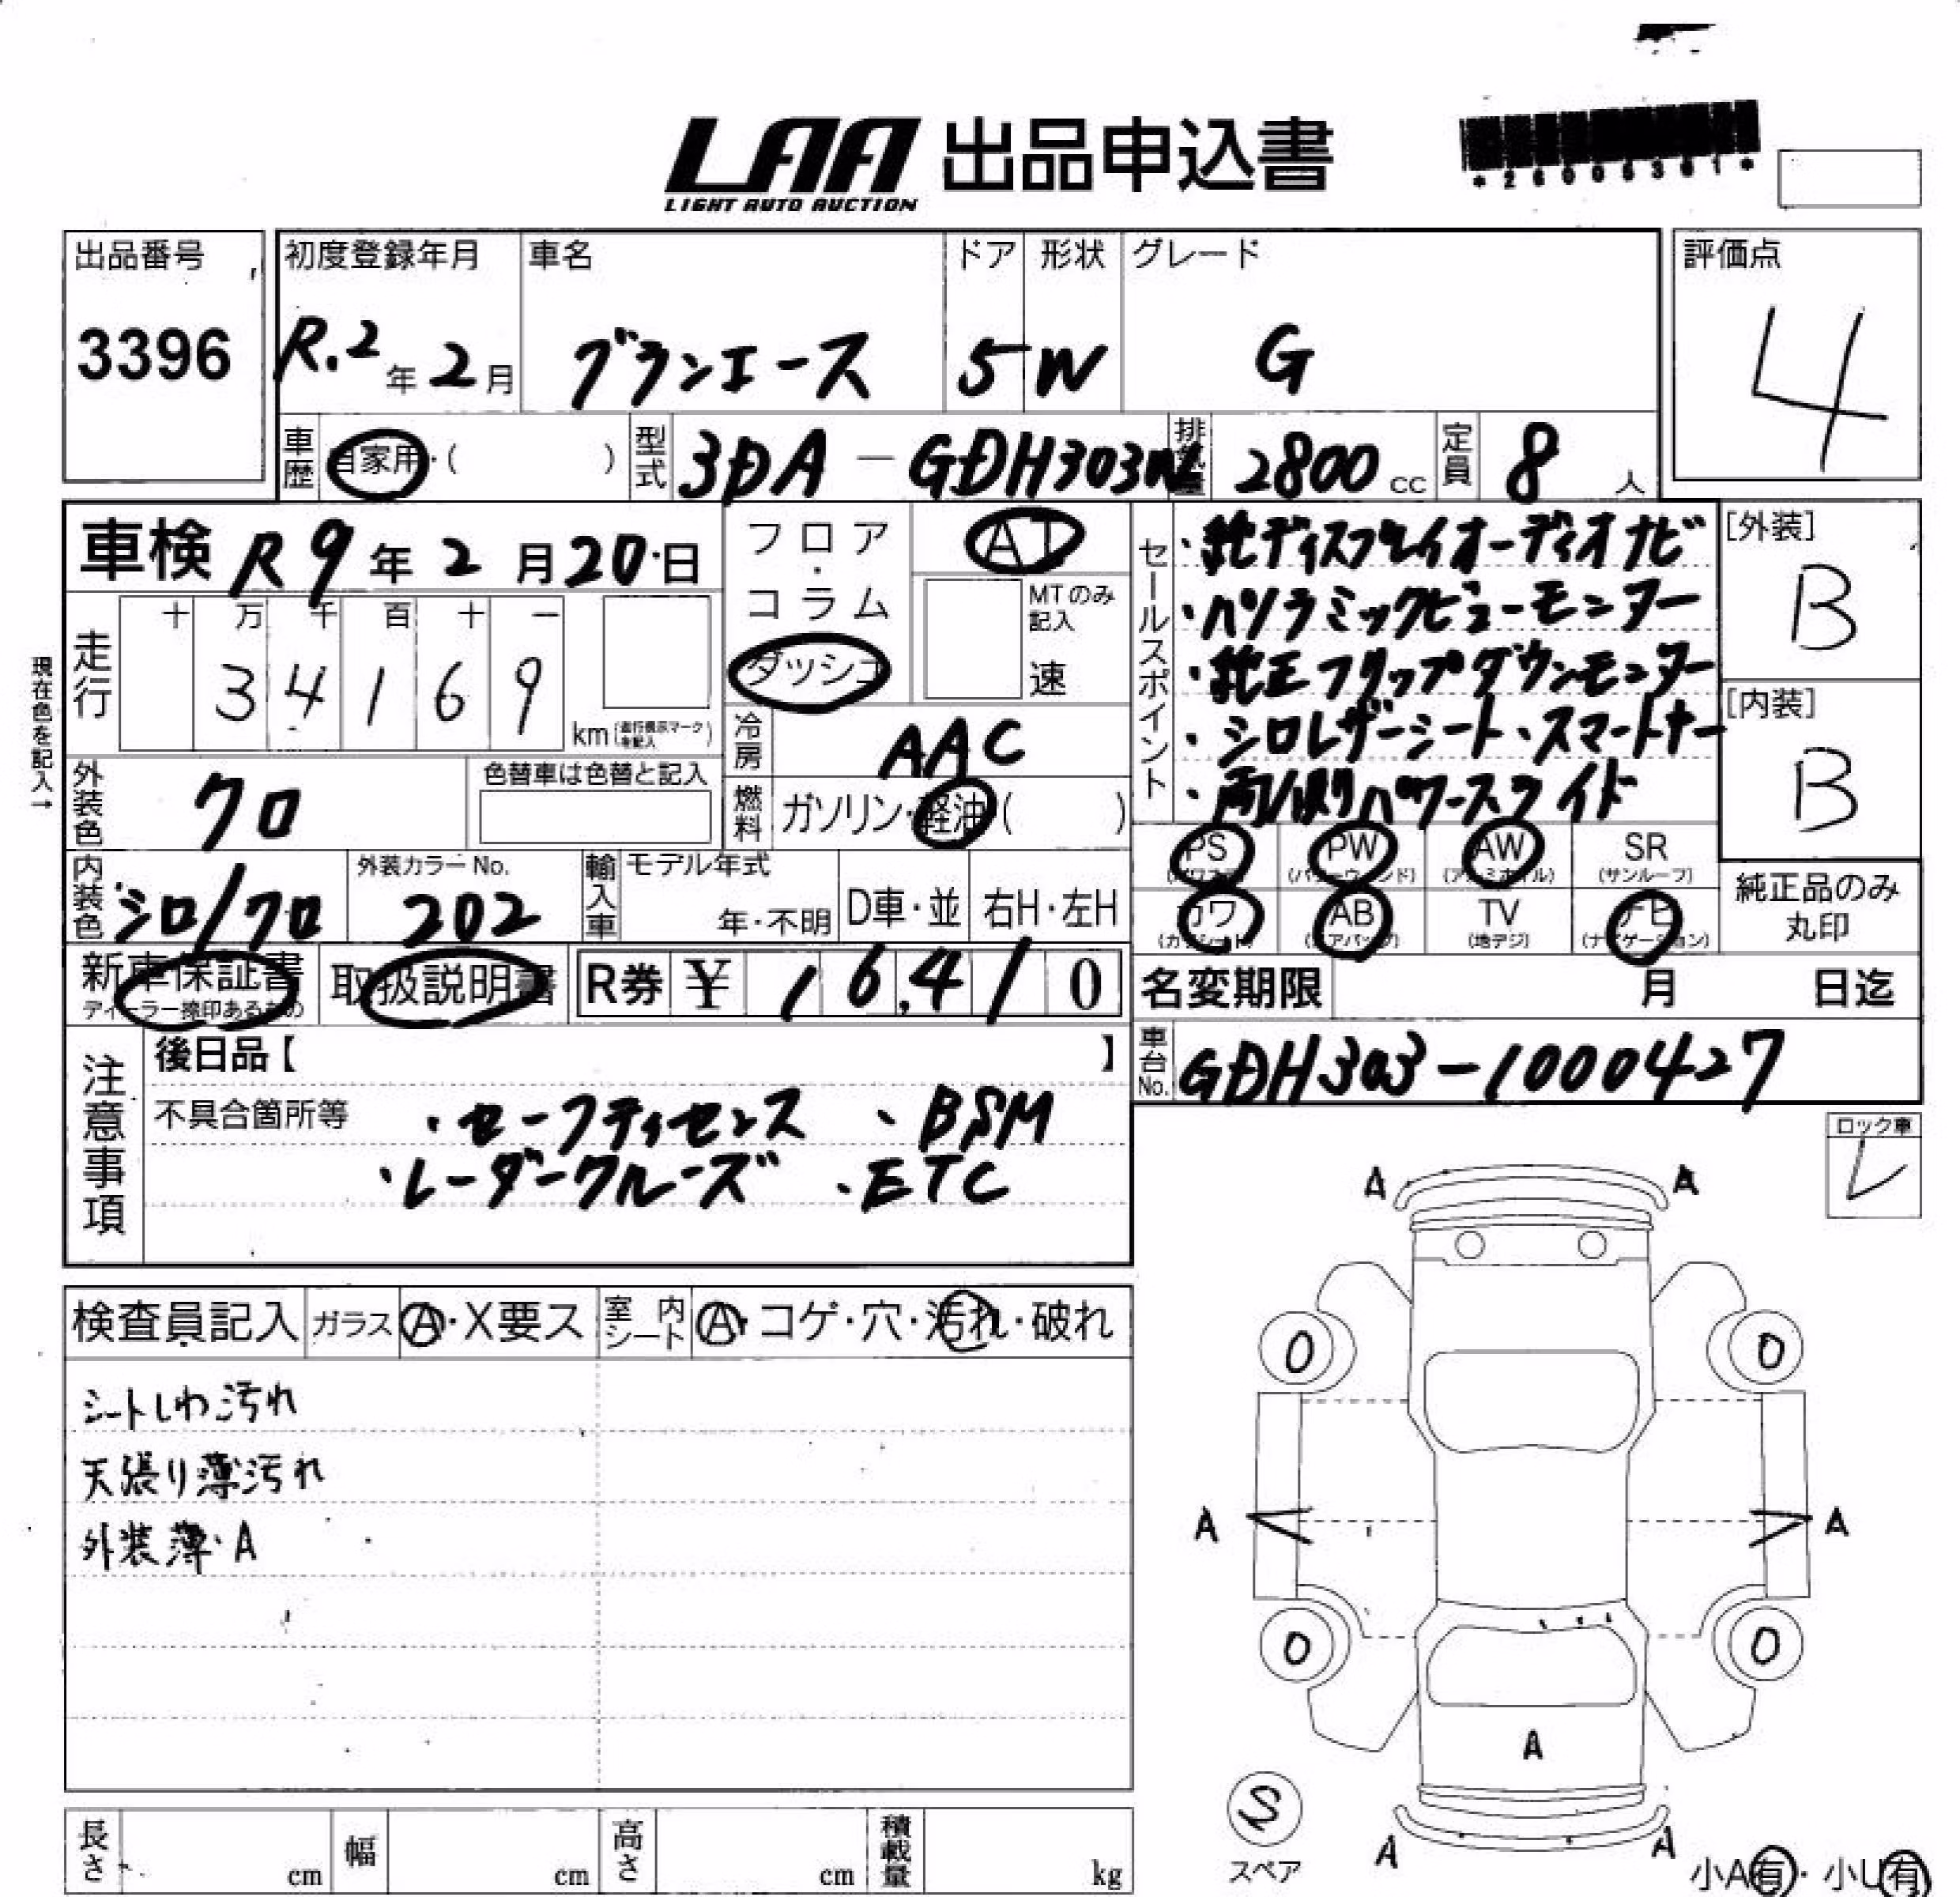 LAA 出品申込書
LIGHT AUTO AUCTION
出品番号 3396
初度登録年月 R.2年2月
車名 グランエース
ドア 5
形状 W
グレード G
評価点 4
車歴 自家用・( )
型式 3DA-GDH303W
排気量 2800cc
定員 8人
車検 R9年2月20日
フロア・コラム ダッシュ
AT
MTのみ記入 速
走行 十万千百十一
34169 km (走行表示マークを記入)
現在色を記入→
外装色 クロ
色替車は色替と記入
冷房 AAC
燃料 ガソリン・軽油( )
セールスポイント
・純ディスプレイオーディオナビ
・パノラミックビューモニター
・純正フリップダウンモニター
・シロレザーシート、スマートキー
・両側パワースライド
[外装] B
[内装] B
PS (パワステ) PW (パワーウィンド) AW (アルミホイル) SR (サンルーフ)
カワ (カワシート) AB (エアバッグ) TV (地デジ) ナビ (ナビゲーション)
純正品のみ丸印
内装色 シロ/クロ
外装カラーNo. 202
輸入車 モデル年式 年・不明 D車・並 右H・左H
新車保証書 ディーラー捺印あるもの
取扱説明書
R券 ¥ 16,410
名変期限 月 日迄
車台No. GDH303-1000427
注意事項
後日品【 】
不具合箇所等 ・セーフティセンス 、BSM
・レーダークルーズ 、ETC
ロック車 レ
検査員記入 ガラス A・X要ス 室内シート A・コゲ・穴・汚れ・破れ
シートしわ汚れ
天張り薄汚れ
外装薄・A
A A
0 0
A A
0 0
A
S
スペア
A A
小A有・小U有
長さ cm 幅 cm 高さ cm 積載量 kg